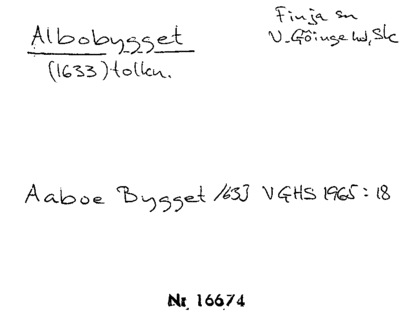 Albobygget
(1633) tolkn.
Finja sn
V. Göinge hd, Sk
Aaboe Bygget 1633 VGHS 1965: 18
Nr 16674